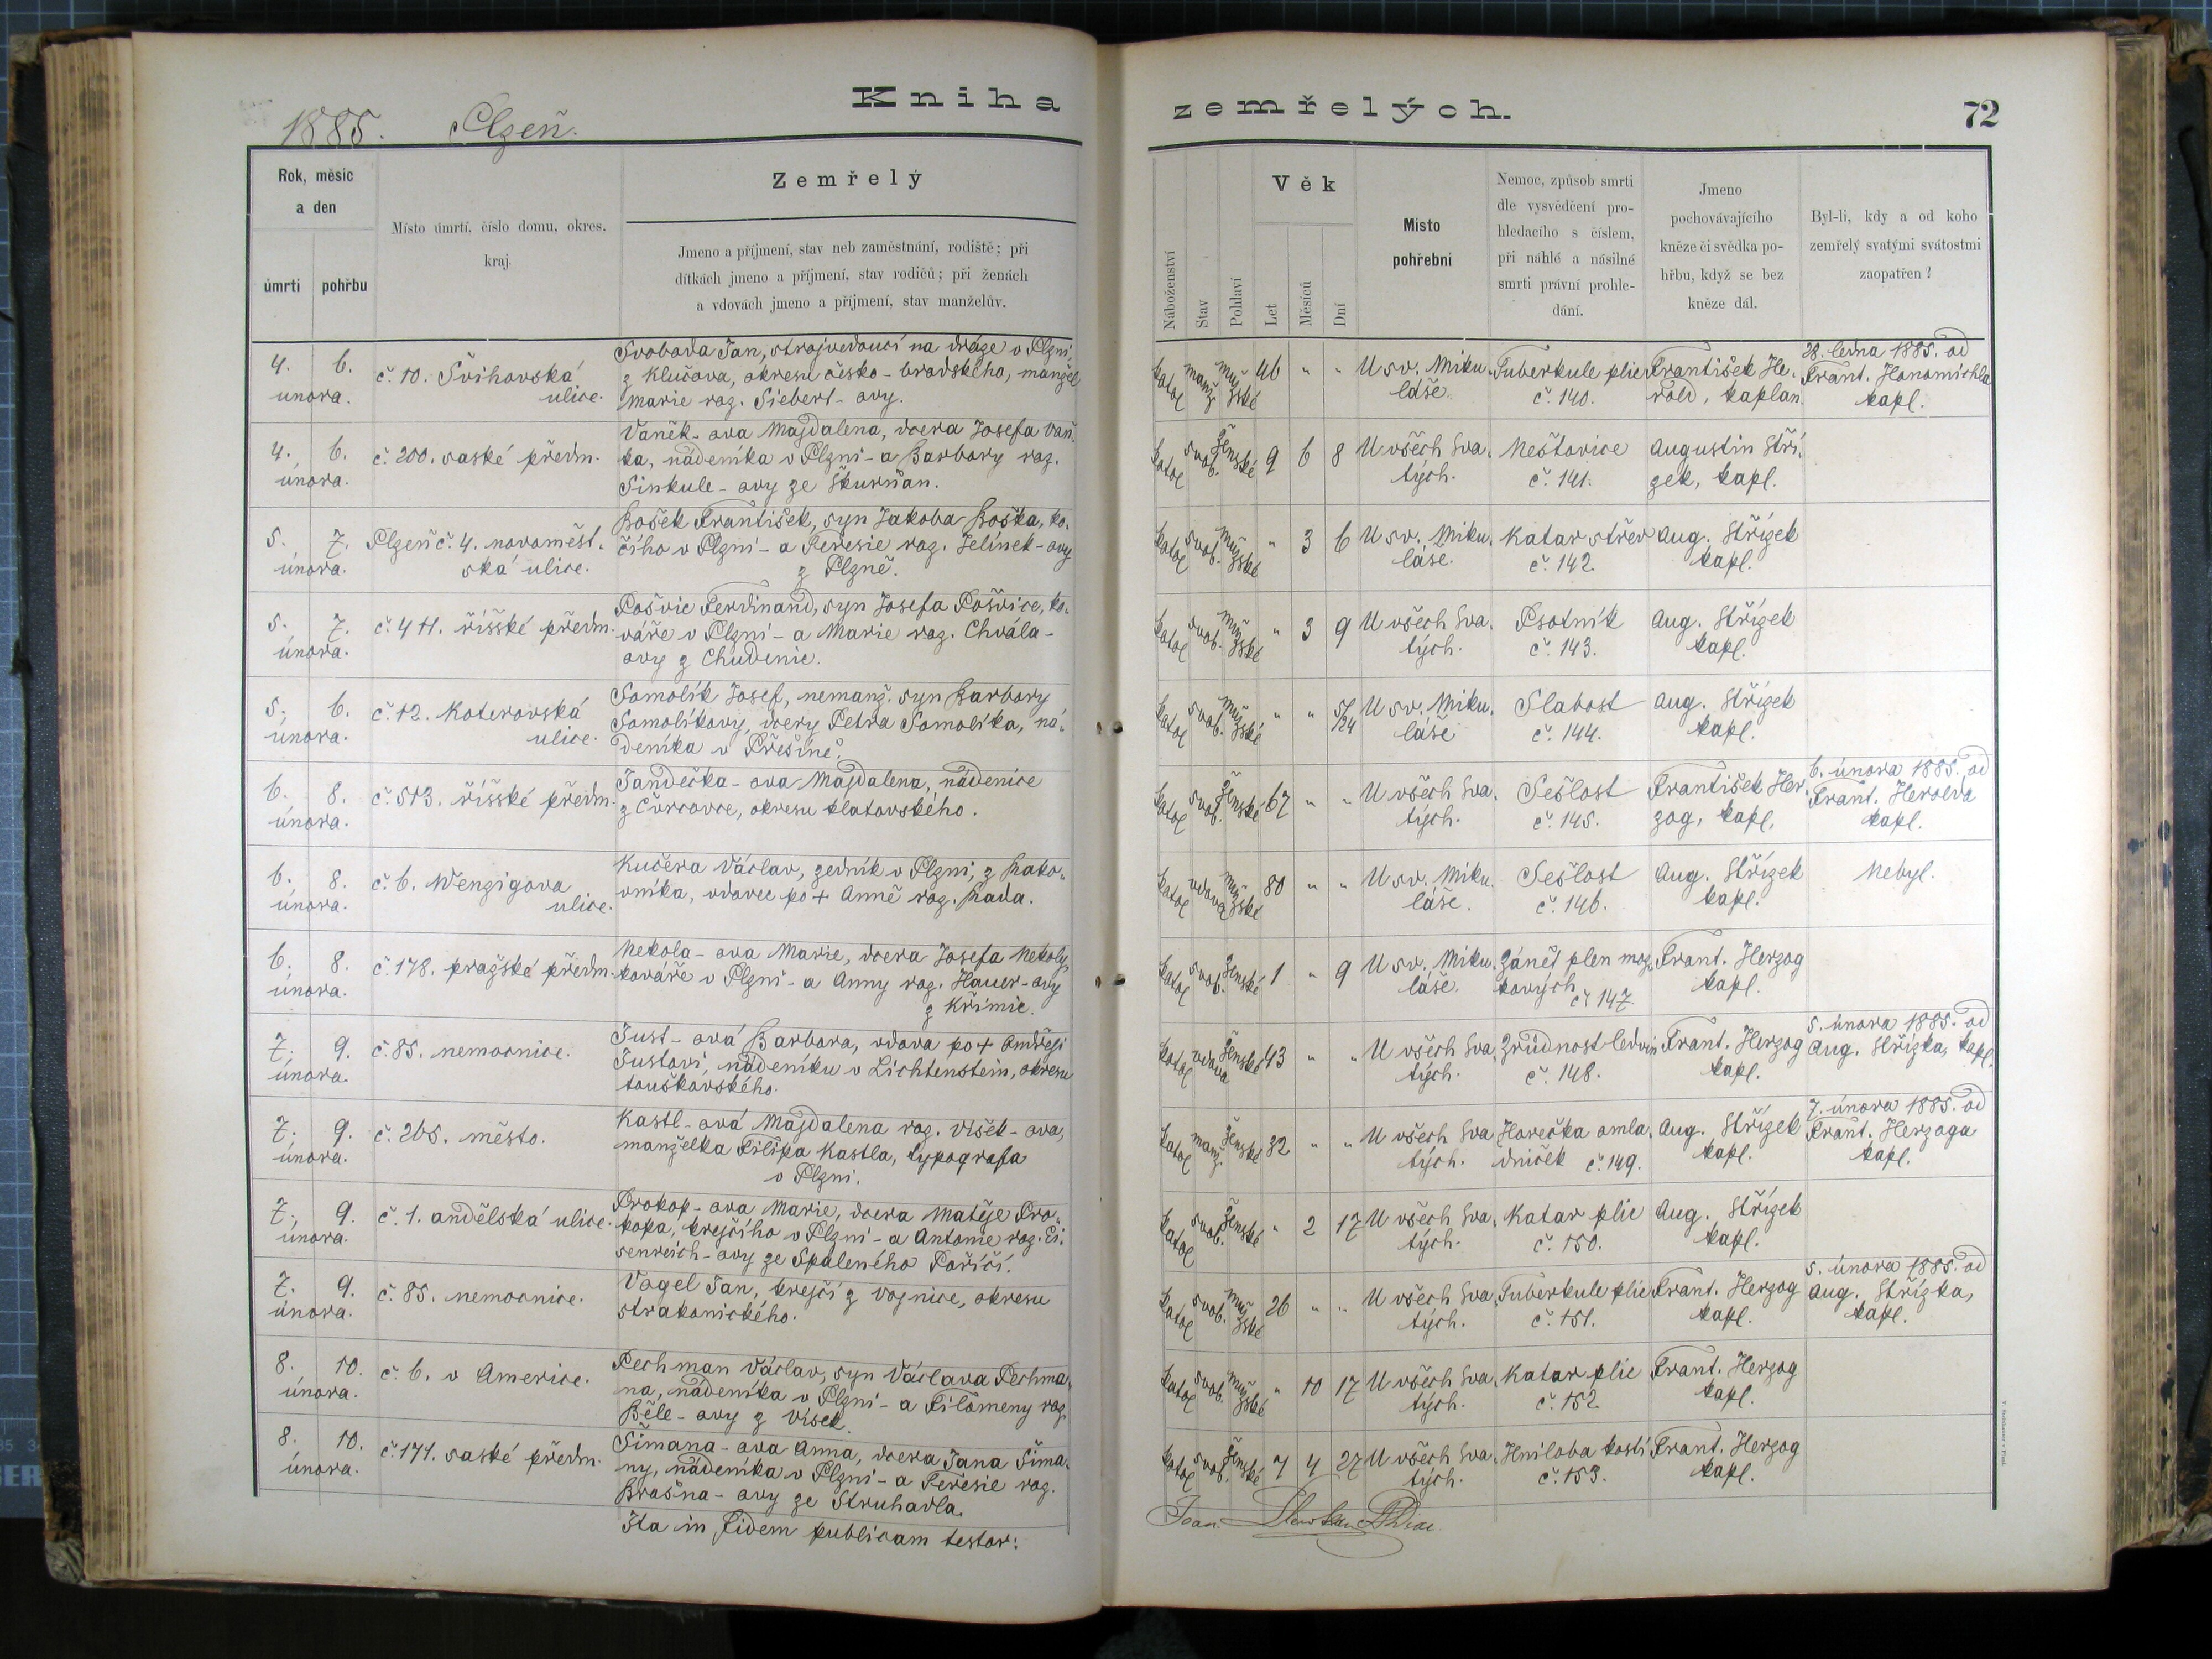 Kniha zemřelých.
72
1885. Plzeň.
Rok, měsíc
a den
úmrtí
pohřbu
Místo úmrtí, číslo domu, okres,
kraj.
Zemřelý
Jmeno a příjmení, stav neb zaměstnání, rodiště; při
dítkách jmeno a příjmení, stav rodičů; při ženách
a vdovách jmeno a příjmení, stav manželův.
Náboženství
Stav
Pohlaví
Věk
Let
Měsíců
Dní
Místo
pohřební
Nemoc, způsob smrti
dle vysvědčení pro-
hledacího s číslem,
při náhlé a násilné
smrti právní prohle-
dání.
Jmeno
pochovávajícího
kněze či svědka po-
hřbu, když se bez
kněze dál.
Byl-li, kdy a od koho
zemřelý svatými svátostmi
zaopatřen?
4. 6.
února.
č. 10. Švihovská
ulice.
Svoboda Jan, strojvedoucí na dráze v Plzni,
z Klučova, okresu česko-brodského, manžel
Marie roz. Siebert-ovy.
katol manž mužské 46 " "
U sv. Miku-
láše.
Tuberkule plic
č. 140.
František He-
rold, kaplan.
28. ledna 1885. od
Frant. Honomichla
kapl.
4. 6.
února.
č. 200. saské předm.
Vaněk-ova Majdalena, dcera Josefa Vaň-
ka, nádeníka v Plzni - a Barbory roz.
Sinkule-ovy ze Škurňan.
katol svob. ženské 9 6 8
U všech Sva-
tých.
Neštovice
č. 141.
Augustin Stří-
zek, kapl.
5. 7.
února.
Plzeň č. 4. novoměst-
ská ulice.
Bošek František, syn Jakoba Boška, ko-
čího v Plzni - a Teresie roz. Jelínek-ovy
z Plzně.
katol svob. mužské " 3 6
U sv. Miku-
láše.
Katar střev
č. 142.
Aug. Střízek
kapl.
5. 7.
února.
č. 411. říšské předm.
Pošvic Ferdinand, syn Josefa Pošvice, ko-
váře v Plzni - a Marie roz. Chvála-
ovy z Chudenic.
katol svob. mužské " 3 9
U všech Sva-
tých.
Psotník
č. 143.
Aug. Střízek
kapl.
5. 6.
února.
č. 12. Koterovská
ulice.
Somolík Josef, nemanž. syn Barbory
Somolíkovy, dcery Petra Somolíka, ná-
deníka v Přešíně.
katol svob. mužské " " 5/24
U sv. Miku-
láše
Slabost
č. 144.
Aug. Střízek
kapl.
6. 8.
února.
č. 513. říšské předm.
Jandečka-ova Majdalena, nádenice
z Čvrčovce, okresu klatovského.
katol svob. ženské 67 " "
U všech Sva-
tých.
Sešlost
č. 145.
František Her-
zog, kapl.
6. února 1885. od
Frant. Herolda
kapl.
6. 8.
února.
č. 6. Wenzigova
ulice.
Kučera Václav, zedník v Plzni, z Rako-
vníka, vdovec po + Anně roz. Rada.
katol vdovec mužské 80 " "
U sv. Miku-
láše.
Sešlost
č. 146.
Aug. Střízek
kapl.
Nebyl.
6. 8.
února.
č. 178. pražské předm.
Nekola-ova Marie, dcera Josefa Nekoly,
kováře v Plzni - a Anny roz. Hauer-ovy
z Křimic.
katol svob. ženské 1 " 9
U sv. Miku-
láše.
Zánět plen moz-
kových
č. 147.
Frant. Herzog
kapl.
7. 9.
února.
č. 85. nemocnice.
Just-ová Barbora, vdova po + Ondřeji
Justovi, nádeníku v Lichtenstein, okresu
touškovského.
katol vdova ženské 43 " "
U všech Sva-
tých.
Zrůdnost ledvin
č. 148.
Frant. Herzog
kapl.
5. února 1885. od
Aug. Střízka, kapl.
7. 9.
února.
č. 265. město.
Kastl-ová Majdalena roz. Višek-ova,
manželka Filipa Kastla, typografa
v Plzni.
katol manž. ženské 32 " "
U všech Sva-
tých.
Horečka omla-
dniček č. 149.
Aug. Střízek
kapl.
7. února 1885. od
Frant. Herzoga
kapl.
7. 9.
února.
č. 1. andělská ulice.
Prokop-ova Marie, dcera Matěje Pro-
kopa, krejčího v Plzni - a Antonie roz. Ei-
senreich-ovy ze Spáleného Poříčí.
katol svob. ženské " 2 17
U všech Sva-
tých.
Katar plic
č. 150.
Aug. Střízek
kapl.
7. 9.
února.
č. 85. nemocnice.
Vogel Jan, krejčí z Vojnice, okresu
strakonického.
katol svob. mužské 26 " "
U všech Sva-
tých.
Tuberkule plic
č. 151.
Frant. Herzog
kapl.
5. února 1885. od
Aug. Střízka,
kapl.
8. 10.
února.
č. 6. v Americe.
Pechman Václav, syn Václava Pechma-
na, nádeníka v Plzni - a Filomeny roz.
Běle-ovy z Vísek.
katol svob. mužské " 10 17
U všech Sva-
tých.
Katar plic
č. 152.
Frant. Herzog
kapl.
8. 10.
února.
č. 171. saské předm.
Šimana-ova Anna, dcera Jana Šima-
ny, nádeníka v Plzni - a Teresie roz.
Brašna-ovy ze Struhadla.
katol svob. ženské 7 4 27
U všech Sva-
tých.
Hniloba kostí
č. 153.
Frant. Herzog
kapl.
Ita in fidem publicam testor:
Joan.